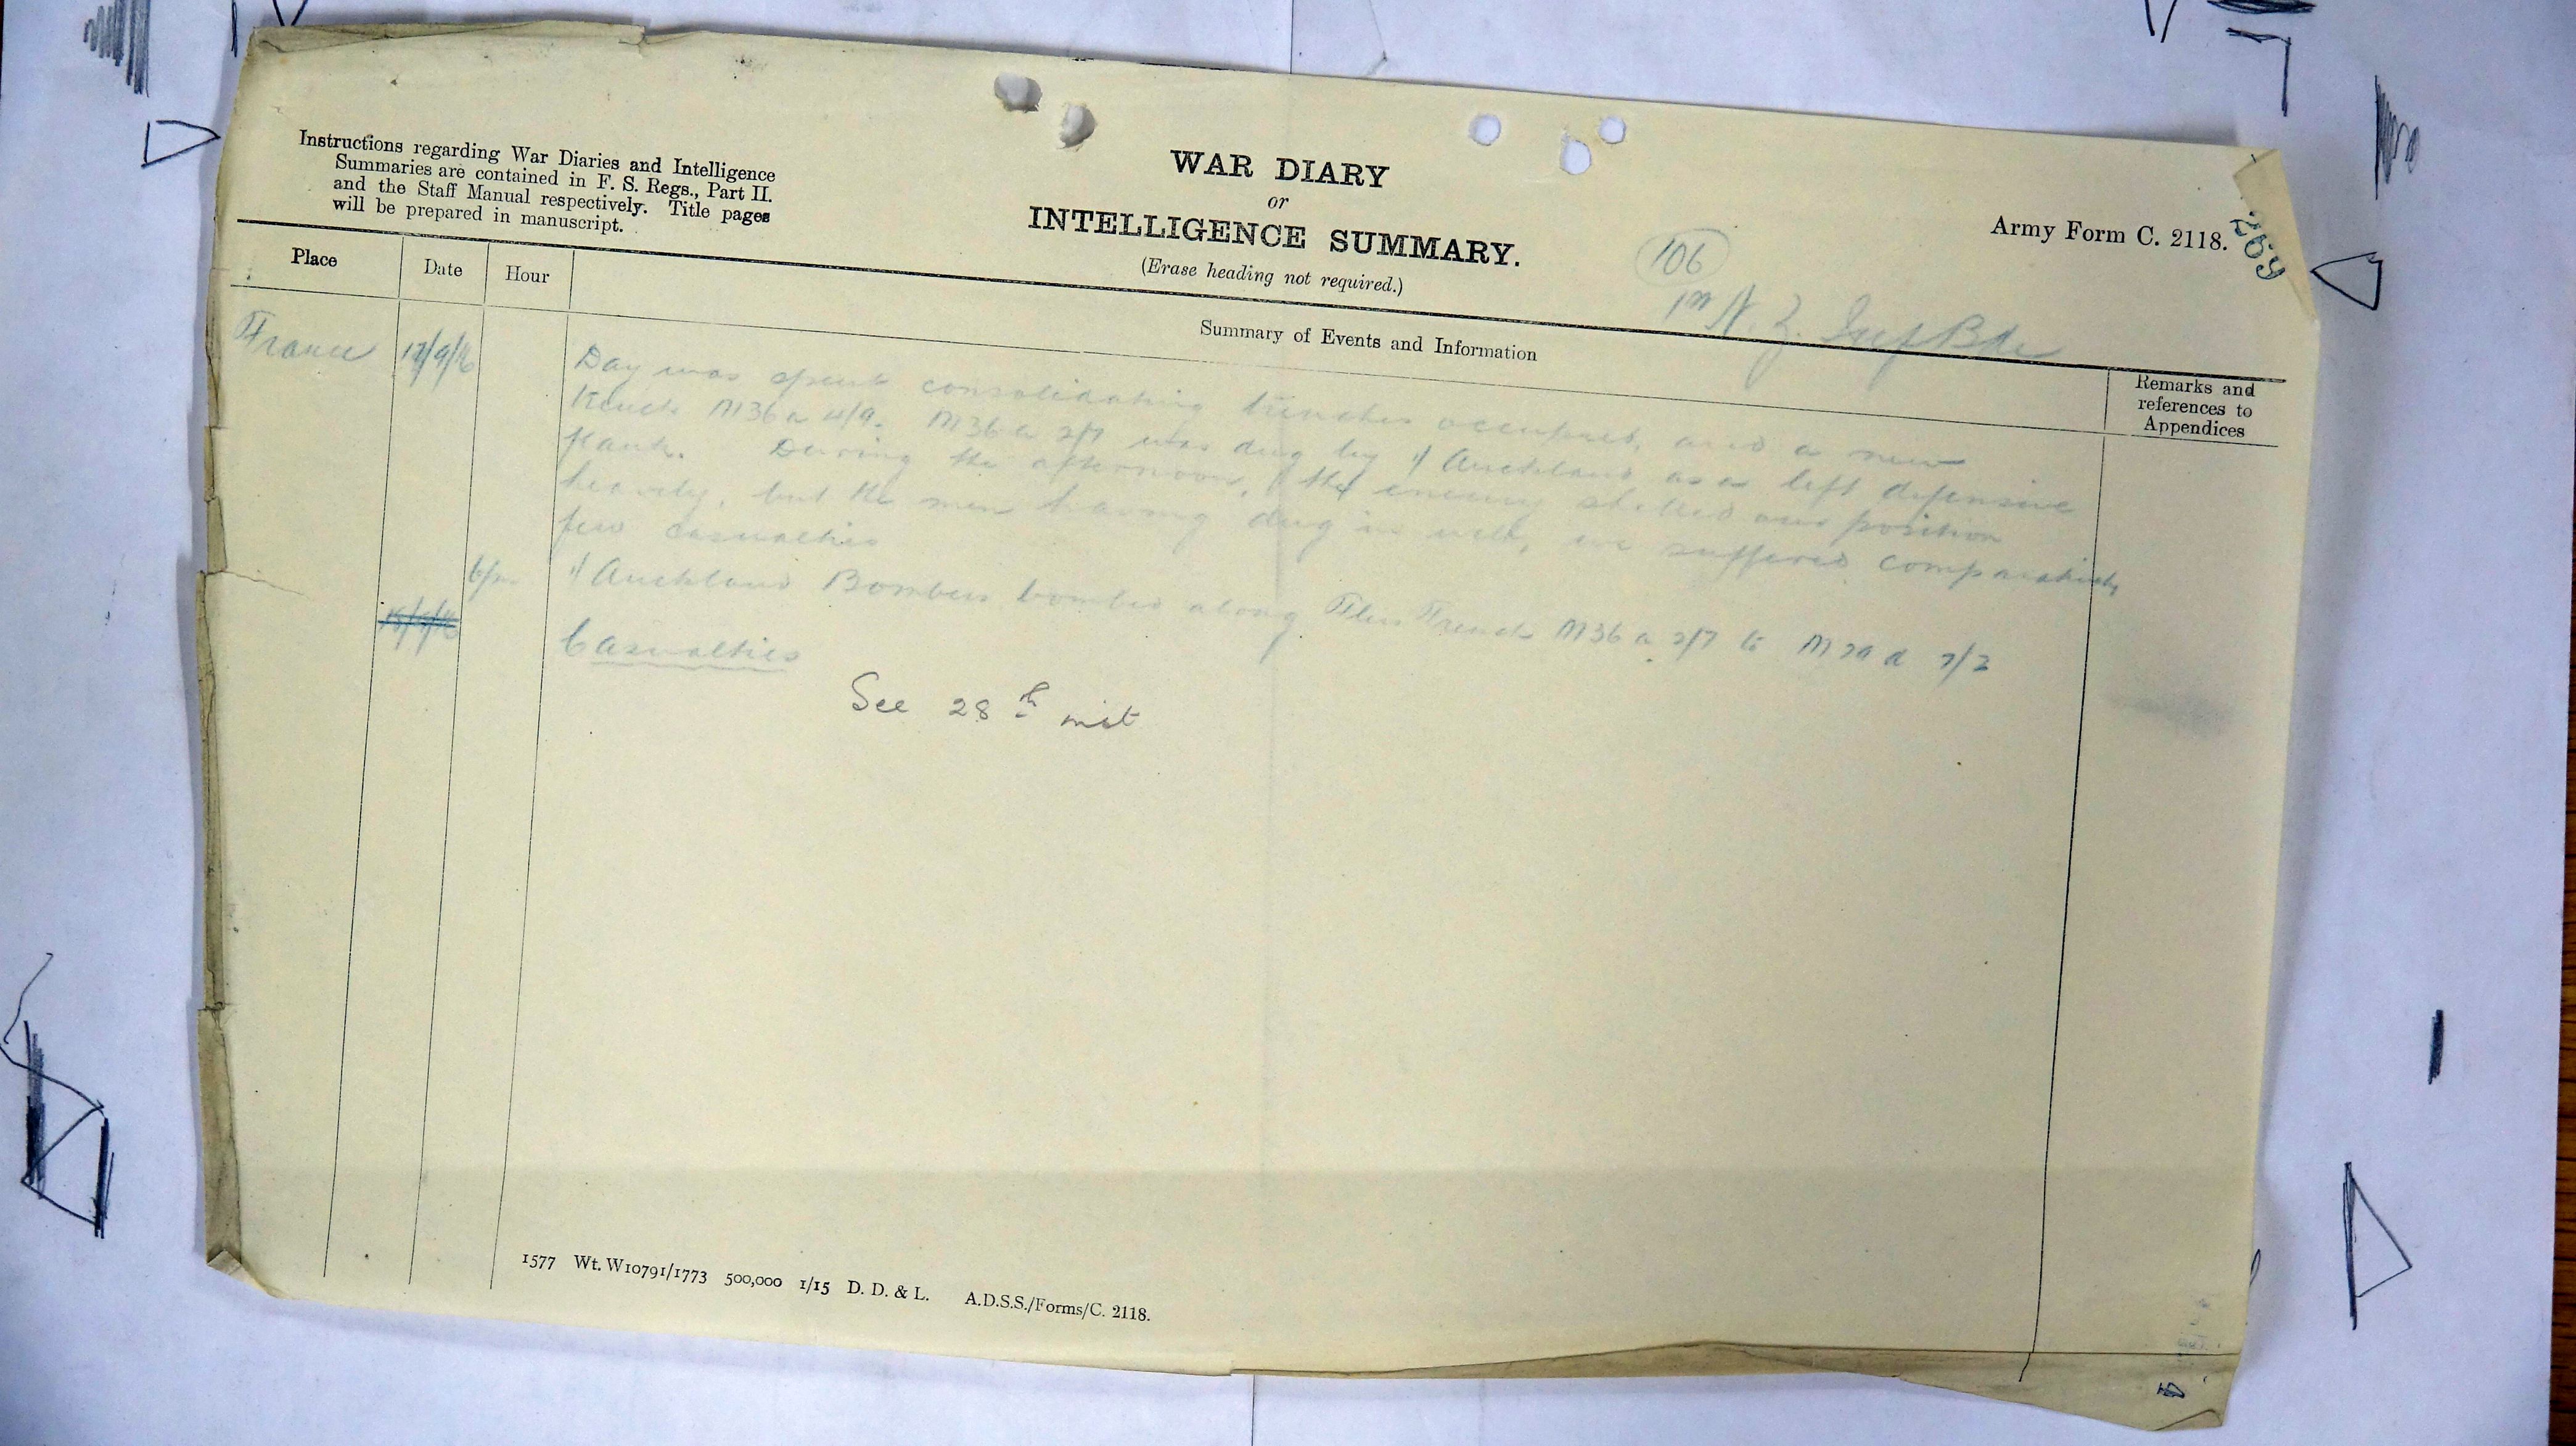 Instructions regarding War Diaries and Intelligence
Summaries are contained in F. S. Regs., Part II.
and the Staff Manual respectively. Title pages
will be prepared in manuscript.
WAR DIARY
or
INTELLIGENCE SUMMARY.
(Erase heading not required.)
Army Form C. 2118.
269
106
1st N. Z. Inf Bde
Place
Date
Hour
Summary of Events and Information
Remarks and
references to
Appendices
France 17/9/16 Day was spent consolidating trenches occupied, and a new
trench M36a 4/9. M36a 2/7 was dug by 1/ Auckland as a left defensive
flank. During the afternoon, the enemy shelled our position
heavily, but the men having dug in well, we suffered comparatively
few casualties
6pm 1/ Auckland Bombers bombed along Flers Trench M36a 2/7 to M d
18/9/16
Casualties
See 28th inst
1577 Wt. W10791/1773 500,000 1/15 D. D. & L. A.D.S.S./Forms/C. 2118.